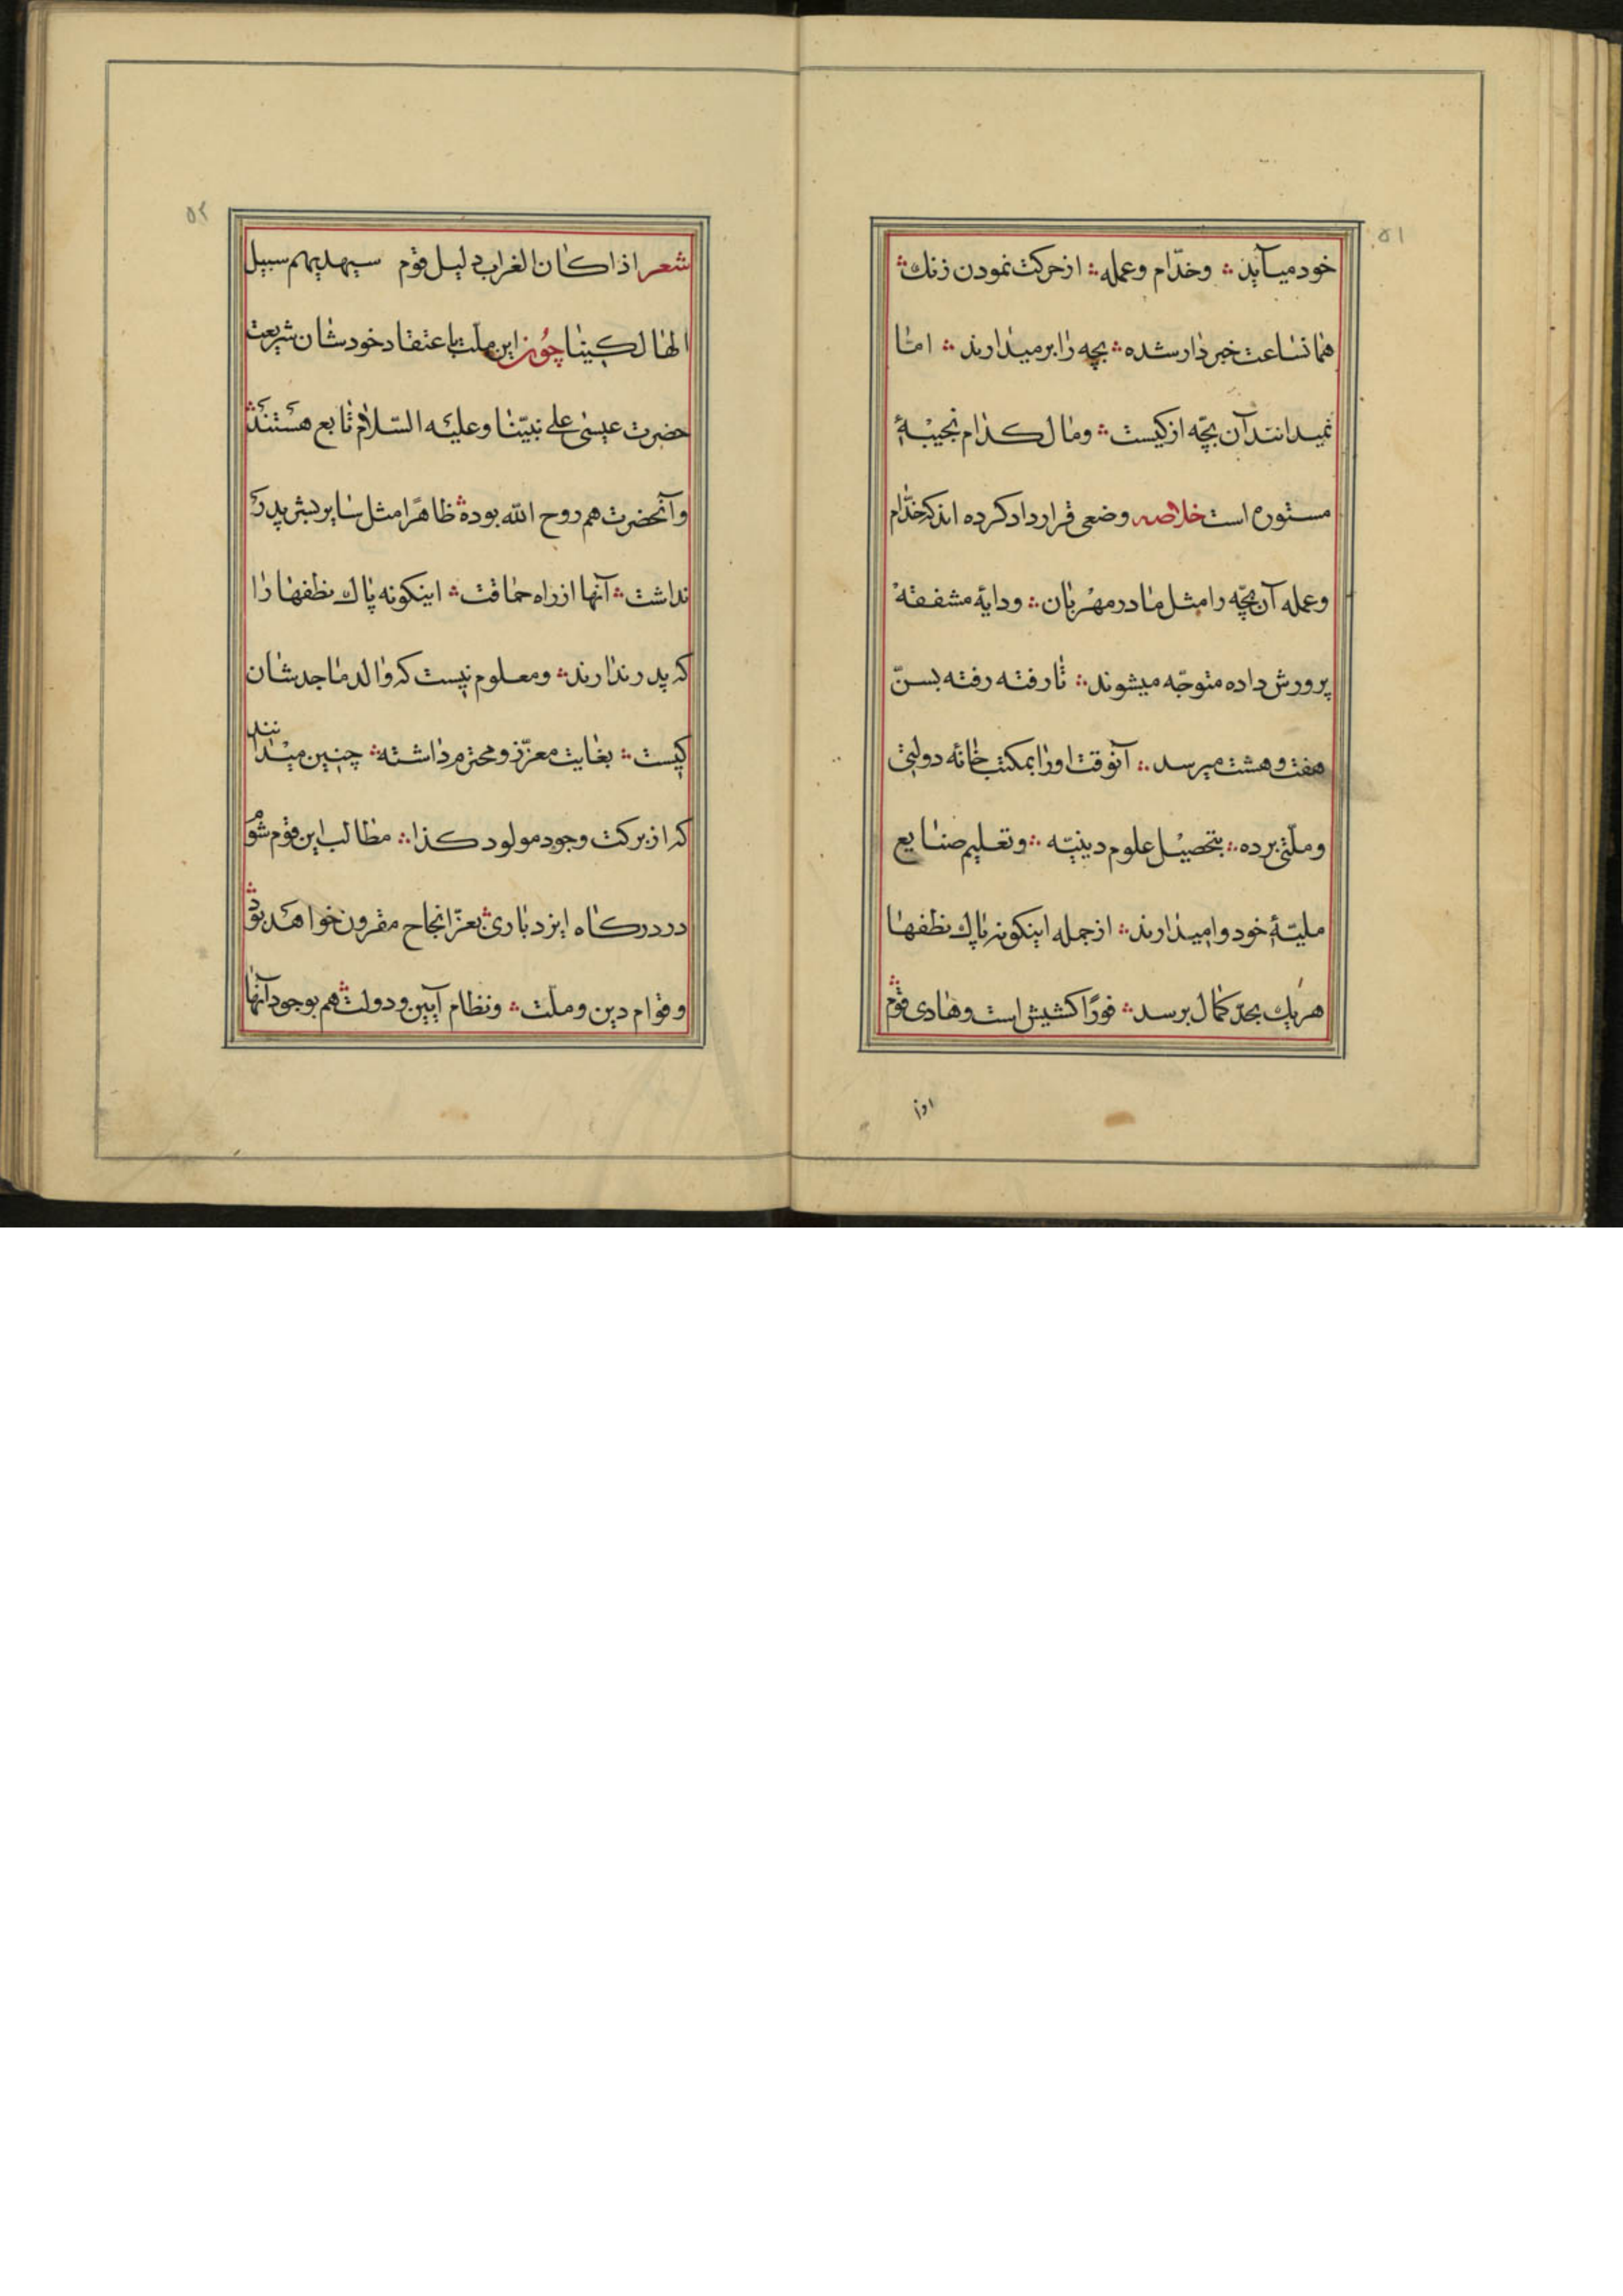 ۵۱
خود میآید ؞ و خدّام و عمله ؞ از حرکت نمودن زنك ؞
همانساعت خبردار شده ؞ بچه را بر میدارند ؞ امّا
نمیدانند آن بچّه از کیست ؞ و مال کدام نجیبۀ
مستوره است خلاصه وضعی قرار داد کرده اند که خدّام
و عمله آن بچّه را مثل مادر مهربان ؞ و دایۀ مشفقه
پرورش داده متوجّه میشوند ؞ تا رفته رفته بسنّ
هفت و هشت میرسد ؞ آنوقت او را بمکتب خانه دولتی
و ملّتی برده ؞ بتحصیل علوم دینیّه ؞ و تعلیم صنایع
ملیّۀ خود وامیدارند ؞ از جمله اینکونه ناپاك نطفها
هریك بحدّ کمال برسد ؞ فورًا کشیش است و هادی قوم ؞
۵۲
شعر اذا کان الغراب دلیل قوم سیهدیهم سبیل
الهالکینا چون این ملّت باعتقاد خودشان شریعت
حضرت عیسی علی نبیّنا و علیه السّلام تابع هستند ؞
و آنحضرت هم روح الله بوده ؞ ظاهرًا مثل سایر بشر پدر
نداشت ؞ آنها از راه حماقت ؞ اینکونه پاك نطفها را
که پدر ندارند ؞ و معلوم نیست که والد ماجدشان
کیست ؞ بغایت معزّز و محترم داشته ؞ چنین میدانند
که از برکت وجود مولود کذا ؞ مطالب این قوم شوم
در درکاه ایزد باری ؞ بعزّ انجاح مقرون خواهد بود ؞
و قوام دین و ملّت ؞ و نظام آیین و دولت ؞ هم بوجود آنها